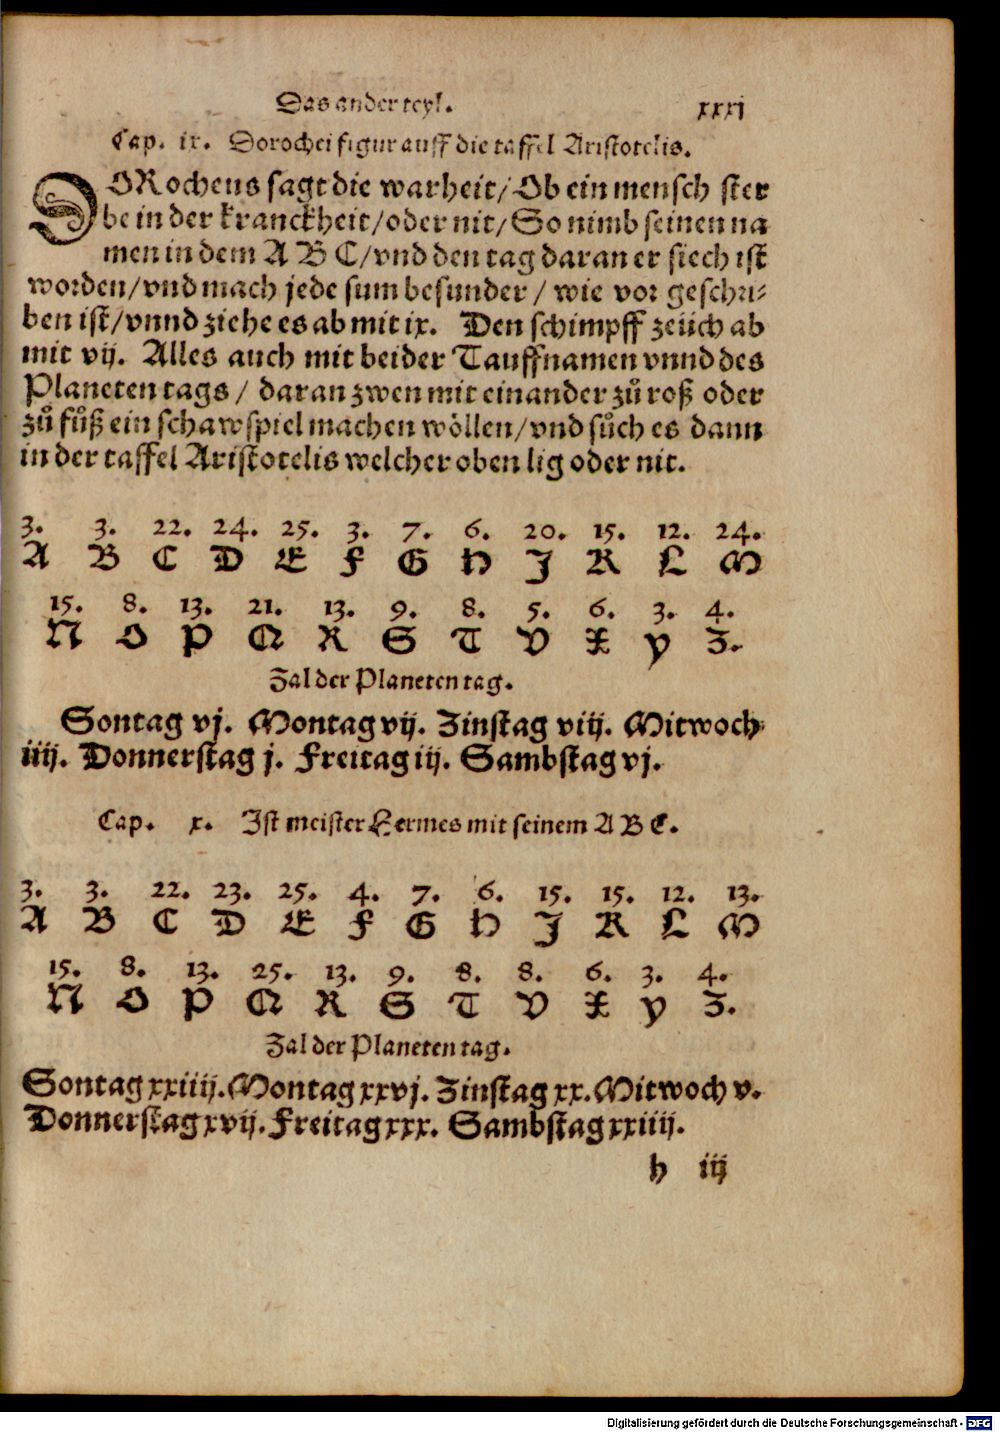 Das ander teyl. xxxj
Cap. ix. Dorochei figur auff die taffel Aristotelis.
DORocheus sagt die warheit/Ob ein mensch ster
be in der kranckheit/oder nit/So nimb seinen na
men in dem A B C/vnd den tag daran er siech ist
worden/vnd mach jede sum besunder/ wie vor geschri⸗
ben ist/vnnd ziehe es ab mit ix. Den schimpff zeüch ab
mit vij. Alles auch mit beider Tauffnamen vnnd des
Planeten tags/ daran zwen mit einander zů roß oder
zů fůß ein schawspiel machen wöllen/vnd sůch es dann
in der taffel Aristotelis welcher oben lig oder nit.
3. 3. 22. 24. 25. 3. 7. 6. 20. 15. 12. 24.
A B C D E F G H J K L M
15. 8. 13. 21. 13. 9. 8. 5. 6. 3. 4.
N O P Q R S T V X y Z.
Zal der Planeten tag.
Sontag vj. Montag vij. Zinstag viij. Mitwoch
iiij. Donnerstag j. Freitag iij. Sambstag vj.
Cap. x. Ist meister Hermes mit seinem A B C.
3. 3. 22. 23. 25. 4. 7. 6. 15. 15. 12. 13.
A B C D E F G H J K L M
15. 8. 13. 25. 13. 9. 8. 8. 6. 3. 4.
N O P Q R S T V X y Z.
Zal der Planeten tag.
Sontag xxiiij. Montag xxvj. Zinstag xx. Mitwoch v.
Donnerstag xvij. Freitag xxx. Sambstag xxiiij.
h iij
Digitalisierung gefördert durch die Deutsche Forschungsgemeinschaft - DFG